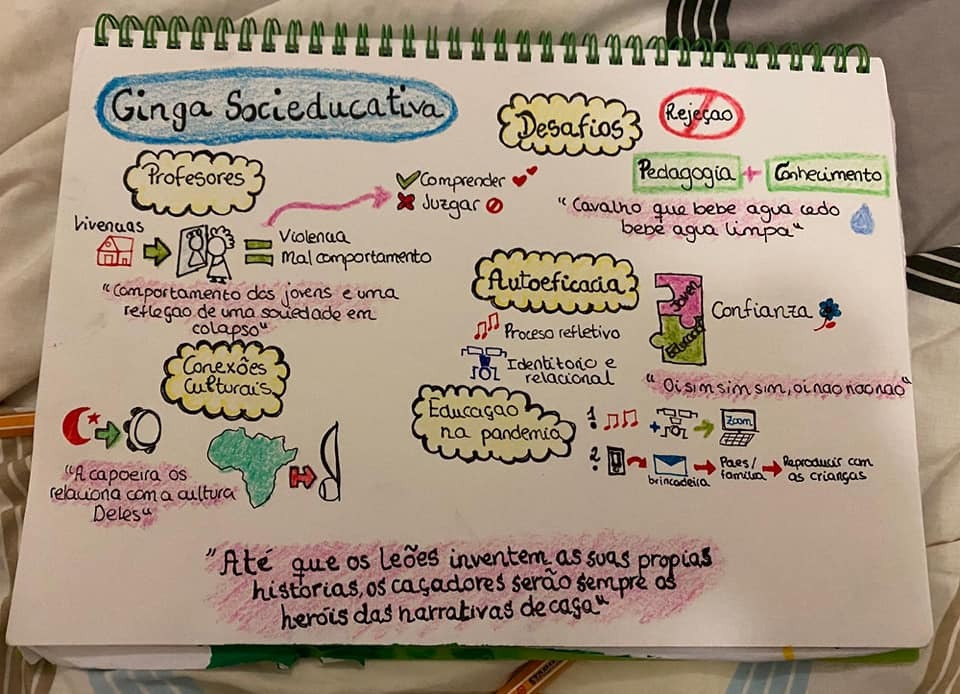 Ginga Socieducativa
Profesores
Vivencias
Violencia
Mal comportamento
Comprender
Juzgar
"Comportamento dos jovens e uma
refleção de uma sociedade em
colapso"
Conexões
Culturais
"A capoeira os
relaciona com a cultura
Deles"
Desafios
Rejeçao
Pedagogia + Conhecimento
"Cavalho que bebe agua cedo
bebe agua limpa"
Autoeficacia
Proceso refletivo
Identitorio e
relacional
Joven
Educador
Confianza
"Oi sim sim sim, oi nao nao nao"
Educaçao
na pandemia
1.
+
zoom
2.
brincadeira
Paes/
família
Reproducir com
as crianças
"Até que os leões inventem as suas propias
histórias, os caçadores serão sempre os
heróis das narrativas de caça"